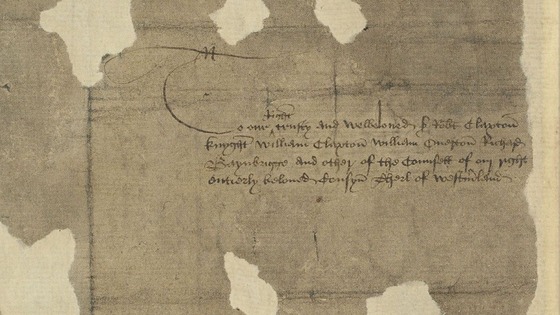 Right
To our trusty and welbeloued Sr Robt Claxton
knyght William Claxton William Richard
and other of the Counsell of our right
entierly beloued Cousyn Therl of Westmerland